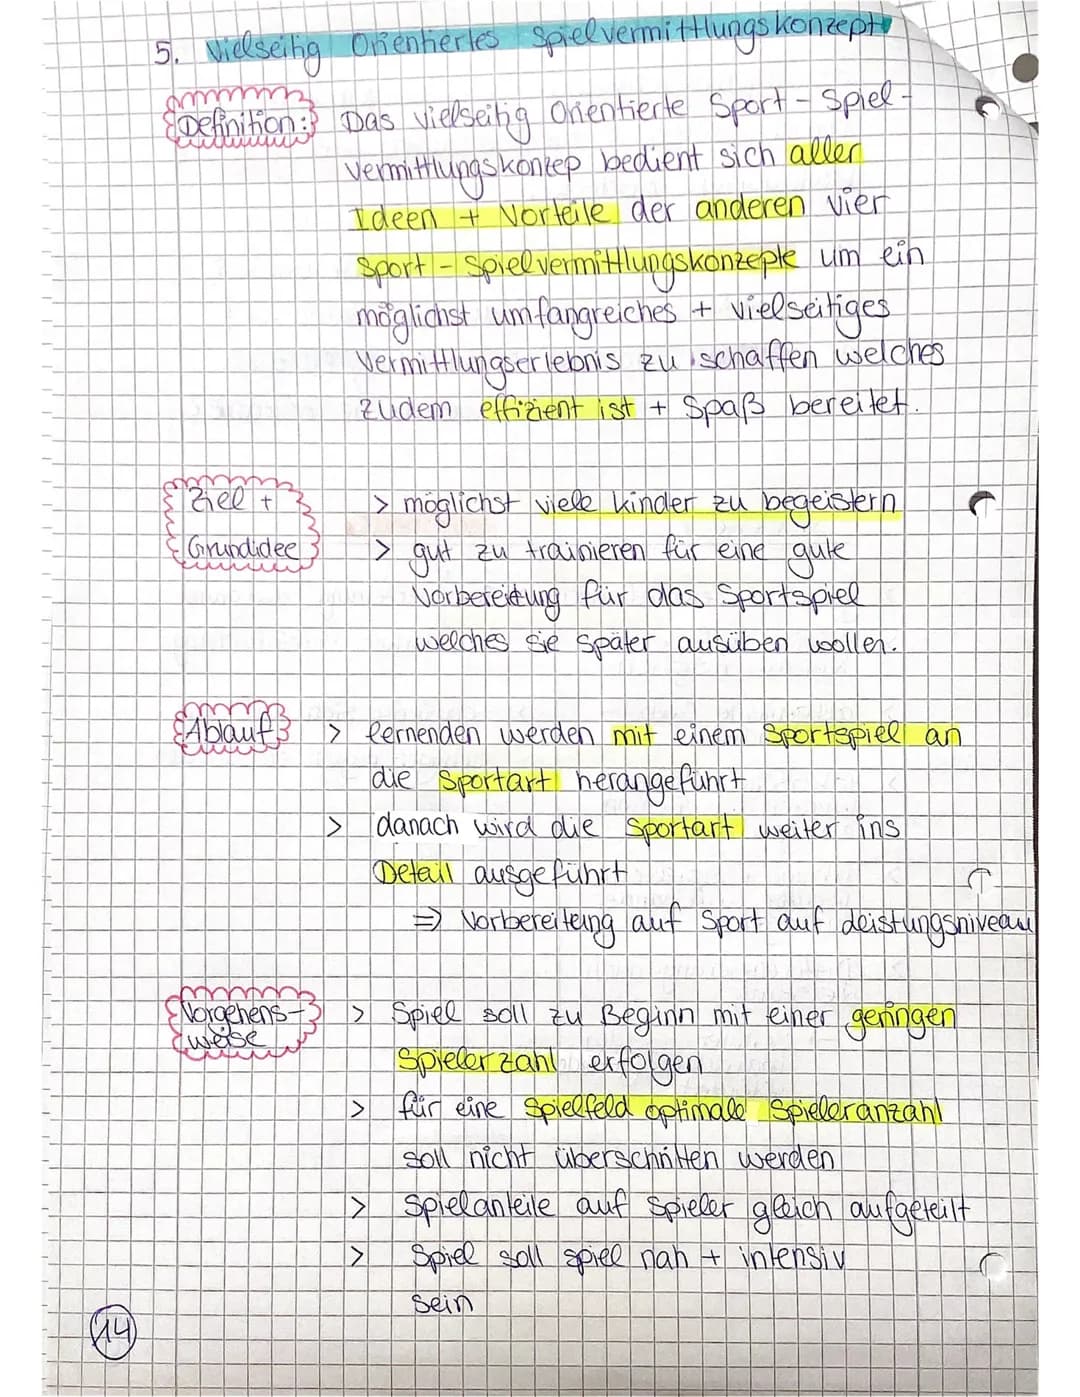 5. Vielseitig Orientiertes Spielvermittlungskonzept
Definition: Das vielseitig Orientierte Sport-Spiel-
vermittlungskonzep bedient sich aller
Ideen + Vorteile der anderen vier
Sport-Spielvermittlungskonzepte um ein
möglichst umfangreiches + vielseitiges
Vermittlungserlebnis zu schaffen welches
zudem effizient ist + Spaß bereitet.
Ziel + > möglichst viele kinder zu begeistern
Grundidee > gut zu trainieren für eine gute
Vorbereitung für das Sportspiel
welches sie später ausüben wollen.
Ablauf > lernenden werden mit einem Sportspiel an
die Sportart herangeführt
> danach wird die Sportart weiter ins
Detail ausgeführt
=> Vorbereitung auf Sport auf Leistungsniveau
Vorgehens- > Spiel soll zu Beginn mit einer geringen
weise
Spielerzahl erfolgen
> für eine Spielfeld optimale Spieleranzahl
soll nicht überschritten werden
> Spielanteile auf Spieler gleich aufgeteilt
> Spiel soll spiel nah + intensiv
sein
14